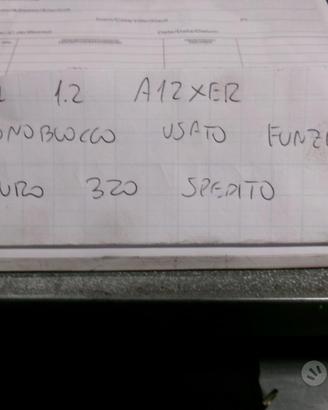 1.2 A12XER
MONOBLOCCO USATO FUNZI
EURO 320 SPEDITO